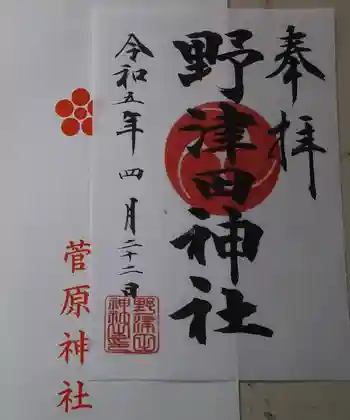 奉拝
野津田神社
令和五年四月二十二日
野津田
神社之印
菅原神社